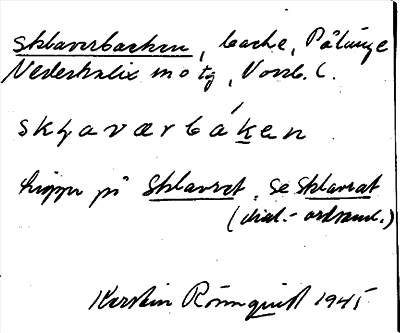 Sklaverbacken, backe, Pålänge
Nederkalix sn o tg, Vbtn. l.
skḷavərbáken
ligger på Sklavret, se Sklavrat
(dial.- ordsaml.)
Kerstin Rönnquist 1945